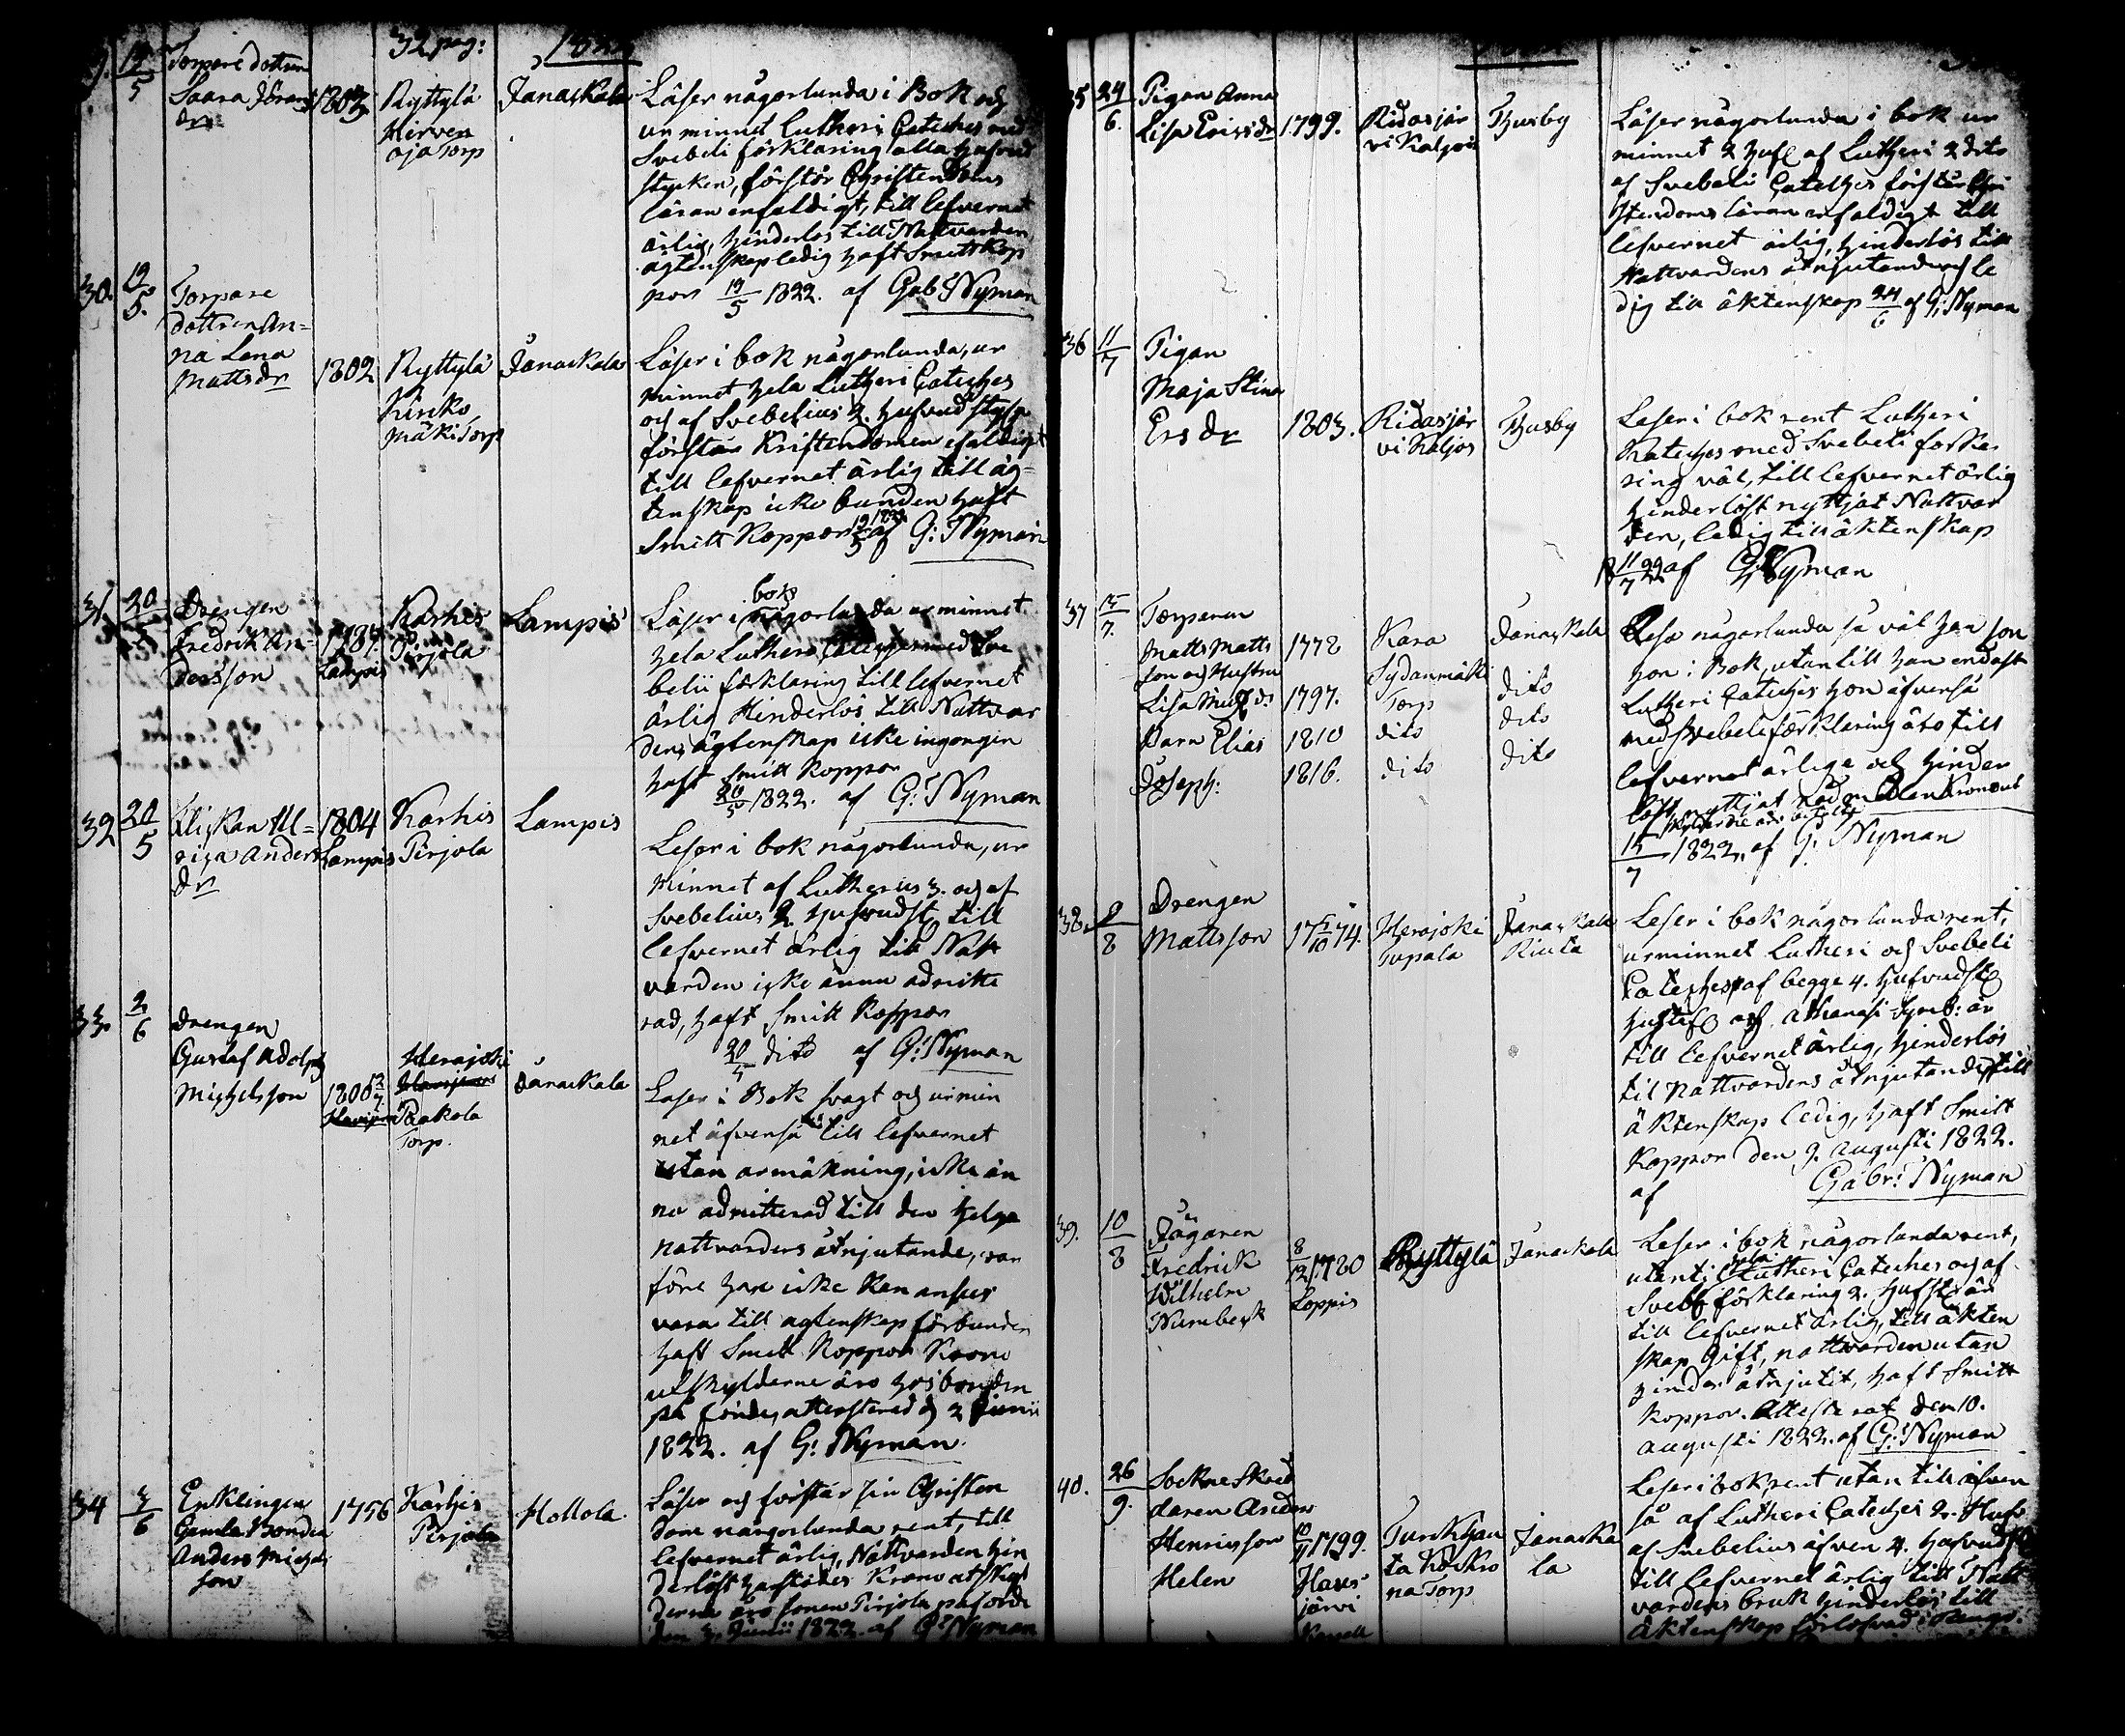 32 pag:
19/5 Torpare dottren
Saara
dr
1803
Ryttylä
Hirven
oja Torp
Janackala
Läser någorlunda i Bok och
ur minnet Lutheri Cateches med
Svebeli förklaring alla hufvud
stycken, förstår Christendoms
läran enfaldigt, till lefvernet
ärlig, hinderlös till Nattvarden
ägtenskap ledig haft Smitt Kop
por 19/5 1822. af Gab Nyman
30. 19/5.
Torpare
dottren An=
na Lena
Mattsdr
1802
Ryttylä
mäki Torp
Janackala
Läser i bok någorlunda, ur
minnet hela Lutheri Cateches
och af Svebelius 2. hufvud styck
förstår Kristendomen efaldigt
till lefvernet ärlig till äg=
tenskap icke bunden haft
Smitt Koppor 19/5 1822 af G: Nyman
31. 20/5
Drengen
Fredrik An=
dersson
1787.
Lampis
Karhis
Pirjola
Lampis
bok
Läser i någorlunda ur minnet
hela Lutheri Cateches med Sve
belii förklaring till lefvernet
ärlig Hinderlös till Nattvar
den, ägtenskap icke ingongin
haft Smitt Koppor
20/5 1822. af G: Nyman
32 20/5
Flickan Ul=
rica Anders
dr
1804
Lampis
Karhis
Pirjola
Lampis
Leser i bok någorlunda, ur
minnet af Lutherus 3. och af
Svebelius 2. hufvudst, till
lefvernet ärlig till Natt
varden icke ännu admitte
rad, haft Smitt Koppor
20/5 dito af G: Nyman
33. 2/6
Drengen
Gustaf Adolph
Michelsson
1800
Herajoki
Paakola
Torp.
Janackala
Laser i Bok svagt och ur min
net äfvenså till lefvernet
utan anmäkning, icke än
nu admitterad till den helga
nattvardens åtnjutande, var
före han icke kan anses
vara till agtenskap förbunden
haft Smitt Koppor Krono
utskylderne äro hos bonden
på förde, attesterad d 2 Junii
1822. af G: Nyman.
34 3/6
Enklingen
Gamla Bonden
Anders Michels
son
1756
Kärhis
Pirjola
Hollola.
Läser och förstår sin Christen
dom någorlunda rent, till
lefvernet ärlig, Nattvarden hin
derlöst Krono utskyl
derne äro sonen Pirjola påförde
den 3. Junii 1822. af G: Nyman
35 24/6.
Pigan Anna
Lisa Ericsdr
1799.
Ridasjär
vi Kaljois
Thusby
Läser någorlunda i bok ur
minnet 2 huf af Lutheri 2 dito
af Svebeli Cateches förstår Chri
stendoms läran enfaldigt till
lefvernet ärlig, hinderlös till
Nattvardens åtnjutande och le
dig till äktenskap 24/6 af G: Nyman
36 11/7
Pigan
Maja Stina
Ers dr
1803.
Ridasjär
vi Kaljos
Thusby
Leser i bok rent Lutheri
Kateches med Svebeli forkla
ring väl, till lefvernet ärlig
hinderlöst nyttjat Nattvar
den, ledig till äktenskap
11/7 22 af G: Nyman
37 15/7.
Torparen
Matts Matts
son och Hustru
Lisa
Barn Elias
Joseph:
1772
1797.
1810
1816.
Kara
Sydanmäki
Torp
dito
dito
Janackala
dito
dito
dito
Läser någorlunda så väl han som
hon i Bok, utantill han endast
Lutheri Cateches hon äfvenså
med Svebeli förklaring äro till
lefvernet ärlige och hinder
löst nyttjat nådmedlen Kronout
15/7 1822. af G: Nyman
38. 9/8
Drengen
Mattsson
17 5/10 74.
Herajoki
Tupala
Janackala
Leser i bok någorlunda rent,
ur minnet Lutheri och Svebeli
Cateches af begge 4. hufvudst
Athanasi Symb: är
till lefvernet ärlig, hinderlös
til Nattvardens åtnjutande, till
äktenskap ledig, haft Smitt
Koppor den 9. Augusti 1822.
af Gabr: Nyman
39. 10/8
Jägaren
Fredrick
Wilhelm
Numberk
8/12 1780
Loppis
Ryttylä
Janackala
Leser i bok någorlunda rent,
utantill hela Lutheri Cateches och af
Sveb förklaring 2. hufst är
till lefvernet ärlig, till äkten
skap gift, nattvarden utan
hinder åtnjutit, haft Smitt
koppor. Attesterat den 10.
Augusti 1822. af G: Nyman
40. 26/9.
Sockneskred
daren Anders
Henricsson
Helen
1799.
Haus
järvi
Turkhau
ta
na Torp
Janacka
la
Leser i bok rent utan till äfven
så af Lutheri Cateches 2. Huf
af Svebelius äfven 4. hufvudst
till lefvernet ärlig till Natt
vardens bruk hinderlös till
äktenskap förlofvad i